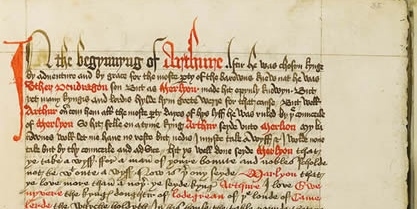 In the begynnyng of Arthure aftir he was chosyn kynge
by adventure and by grace for the moste pty of the barowns knew nat he was
Uther Pendragon son But as Merlyon made hit opynly knowyn. But
yet many kyngis and lordis hylde hym grete werre for that cause. But well
Arthur ovcom hem all the moste pty dayes of hys lyff he was ruled by þe counceile
of Merlyon. So hit felle on a tyme kyng Arthur seyde unto Merlion my ba
rownes woll let me have no reste but nedis I muste take A wyff & I wolde none
take but by thy counceile and advice. Hit ys well done seyde Merlyon that
ye take a wyff. for a man of youre bounte and nobles scholde
not be wtoute a wyff. Now is þer ony seyde Marlyon that
ye love more than a noþer ye seyde kyng Arthure I love Gwe
nyvere the kynges doughtir of Lodegrean of þe londe of Came
lerde the whyche holdyth in his house the table rounde